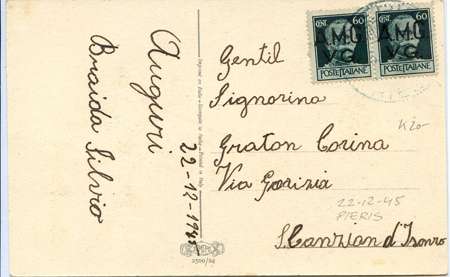 Auguri
Braida Silvio
22-12-1945
Imprimé en Italie - Stampato in Italia - Printed in Italy
2500/24
CENT. 60
A.M.G.
V.G.
POSTE ITALIANE
CENT. 60
A.M.G.
V.G.
POSTE ITALIANE
Gentil
Signorina
Graton Corina
Via Gorizia
S. Canzian d'Isonzo
K20-
22-12-45
PIERIS